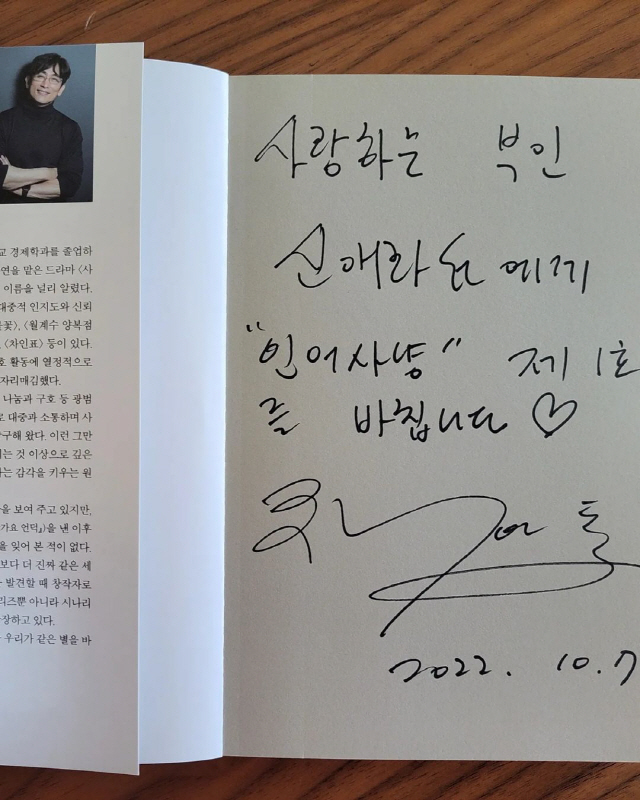 교 경제학과를 졸업하
연을 맡은 드라마 〈사
이름을 널리 알렸다.
대중적 인지도와 신뢰
꽃〉, 〈월계수 양복점
〈차인표〉 등이 있다.
호 활동에 열정적으로
자리매김했다.
나눔과 구호 등 광범
로 대중과 소통하며 사
구해 왔다. 이런 그만
는 것 이상으로 깊은
는 감각을 키우는 원
을 보여 주고 있지만,
가요 언덕』)을 낸 이후
을 잊어 본 적이 없다.
보다 더 진짜 같은 세
발견할 때 창작자로
리즈뿐 아니라 시나리
장하고 있다.
우리가 같은 별을 바
사랑하는 부인
신애라 에게
"인어사냥" 제 1호
를 바칩니다 ♡
2022. 10. 7